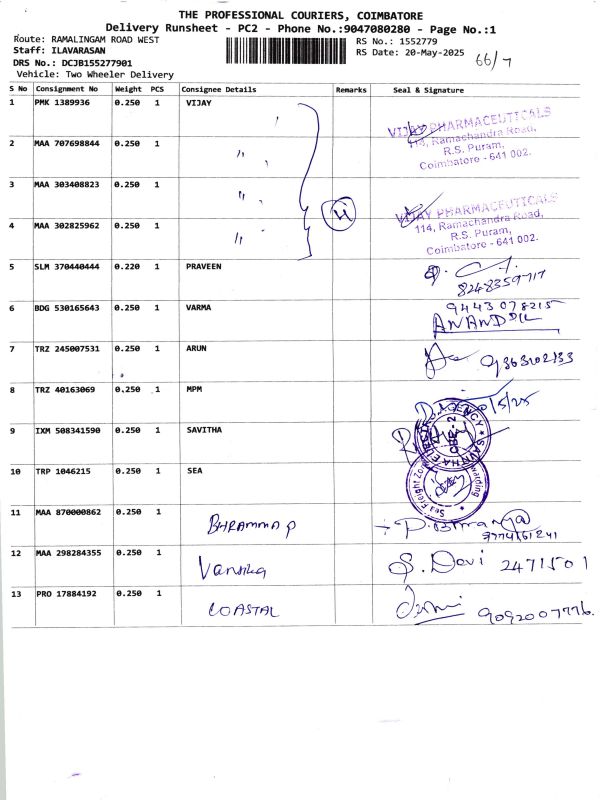 THE PROFESSIONAL COURIERS, COIMBATORE
Delivery Runsheet - PC2 - Phone No.:9047080280 - Page No.:1
Route: RAMALINGAM ROAD WEST
RS No.: 1552779
Staff: ILAVARASAN
RS Date: 20-May-2025
66/7
DRS No.: DCJB155277901
Vehicle: Two Wheeler Delivery
S No Consignment No Weight PCS Consignee Details Remarks Seal & Signature
1 PMK 1389936 0.250 1 VIJAY
VIJAY PHARMACEUTICALS
114, Ramachandra Road,
R.S. Puram,
Coimbatore - 641 002.
2 MAA 707698844 0.250 1 "
3 MAA 303408823 0.250 1 "
VIJAY PHARMACEUTICALS
114, Ramachandra Road,
R.S. Puram,
Coimbatore - 641 002.
4 MAA 302825962 0.250 1 "
5 SLM 370440444 0.220 1 PRAVEEN
8248359717
6 BDG 530165643 0.250 1 VARMA
9443078215
7 TRZ 245007531 0.250 1 ARUN
8 TRZ 40163069 0.250 1 MPM
9 IXM 508341590 0.250 1 SAVITHA
10 TRP 1046215 0.250 1 SEA
11 MAA 870000862 0.250 1
12 MAA 298284355 0.250 1
S. Devi 2471501
13 PRO 17884192 0.250 1 COASTAL
9092007776.